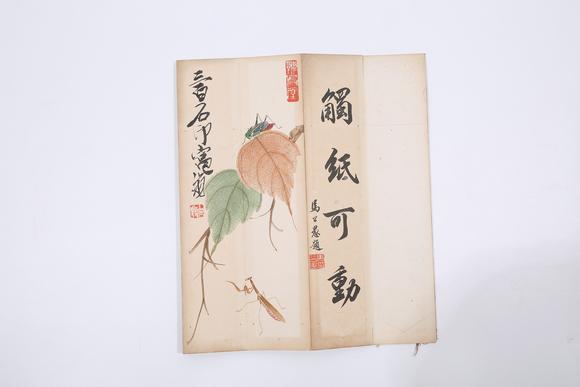 觸紙可動
馬公愚題
三百石印富翁